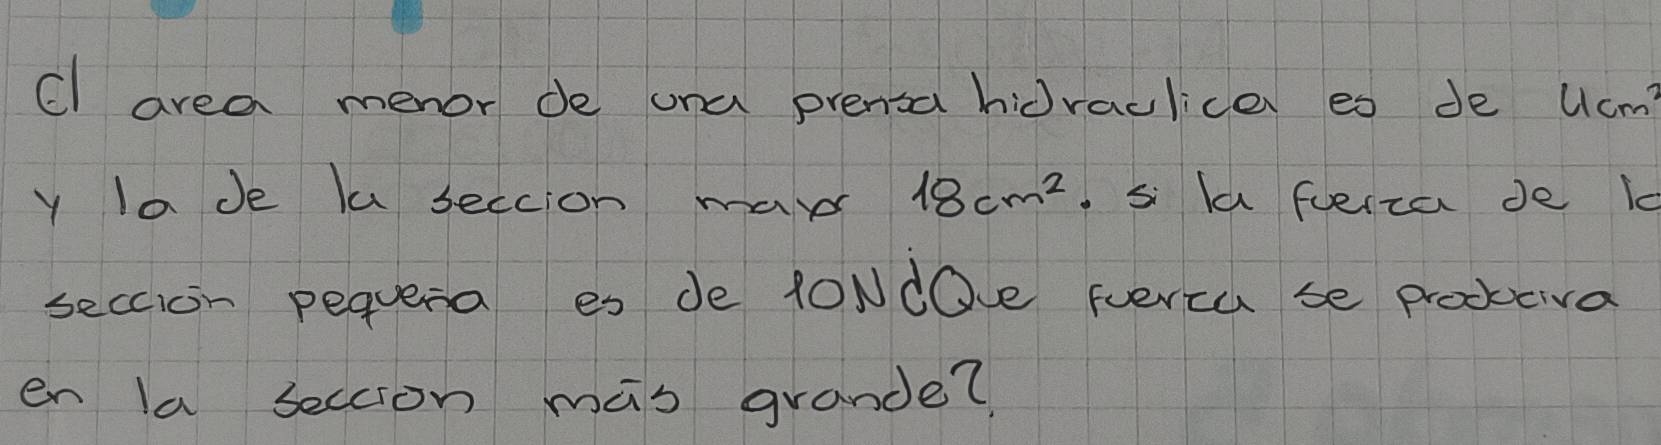 El area menor de una prensa hidraulica es de 4cm²
y la de la seccion mayor 18cm². si la fuerza de la
sección pequeña es de 10N ¿Que fuerza se producira
en la seccion más grande?